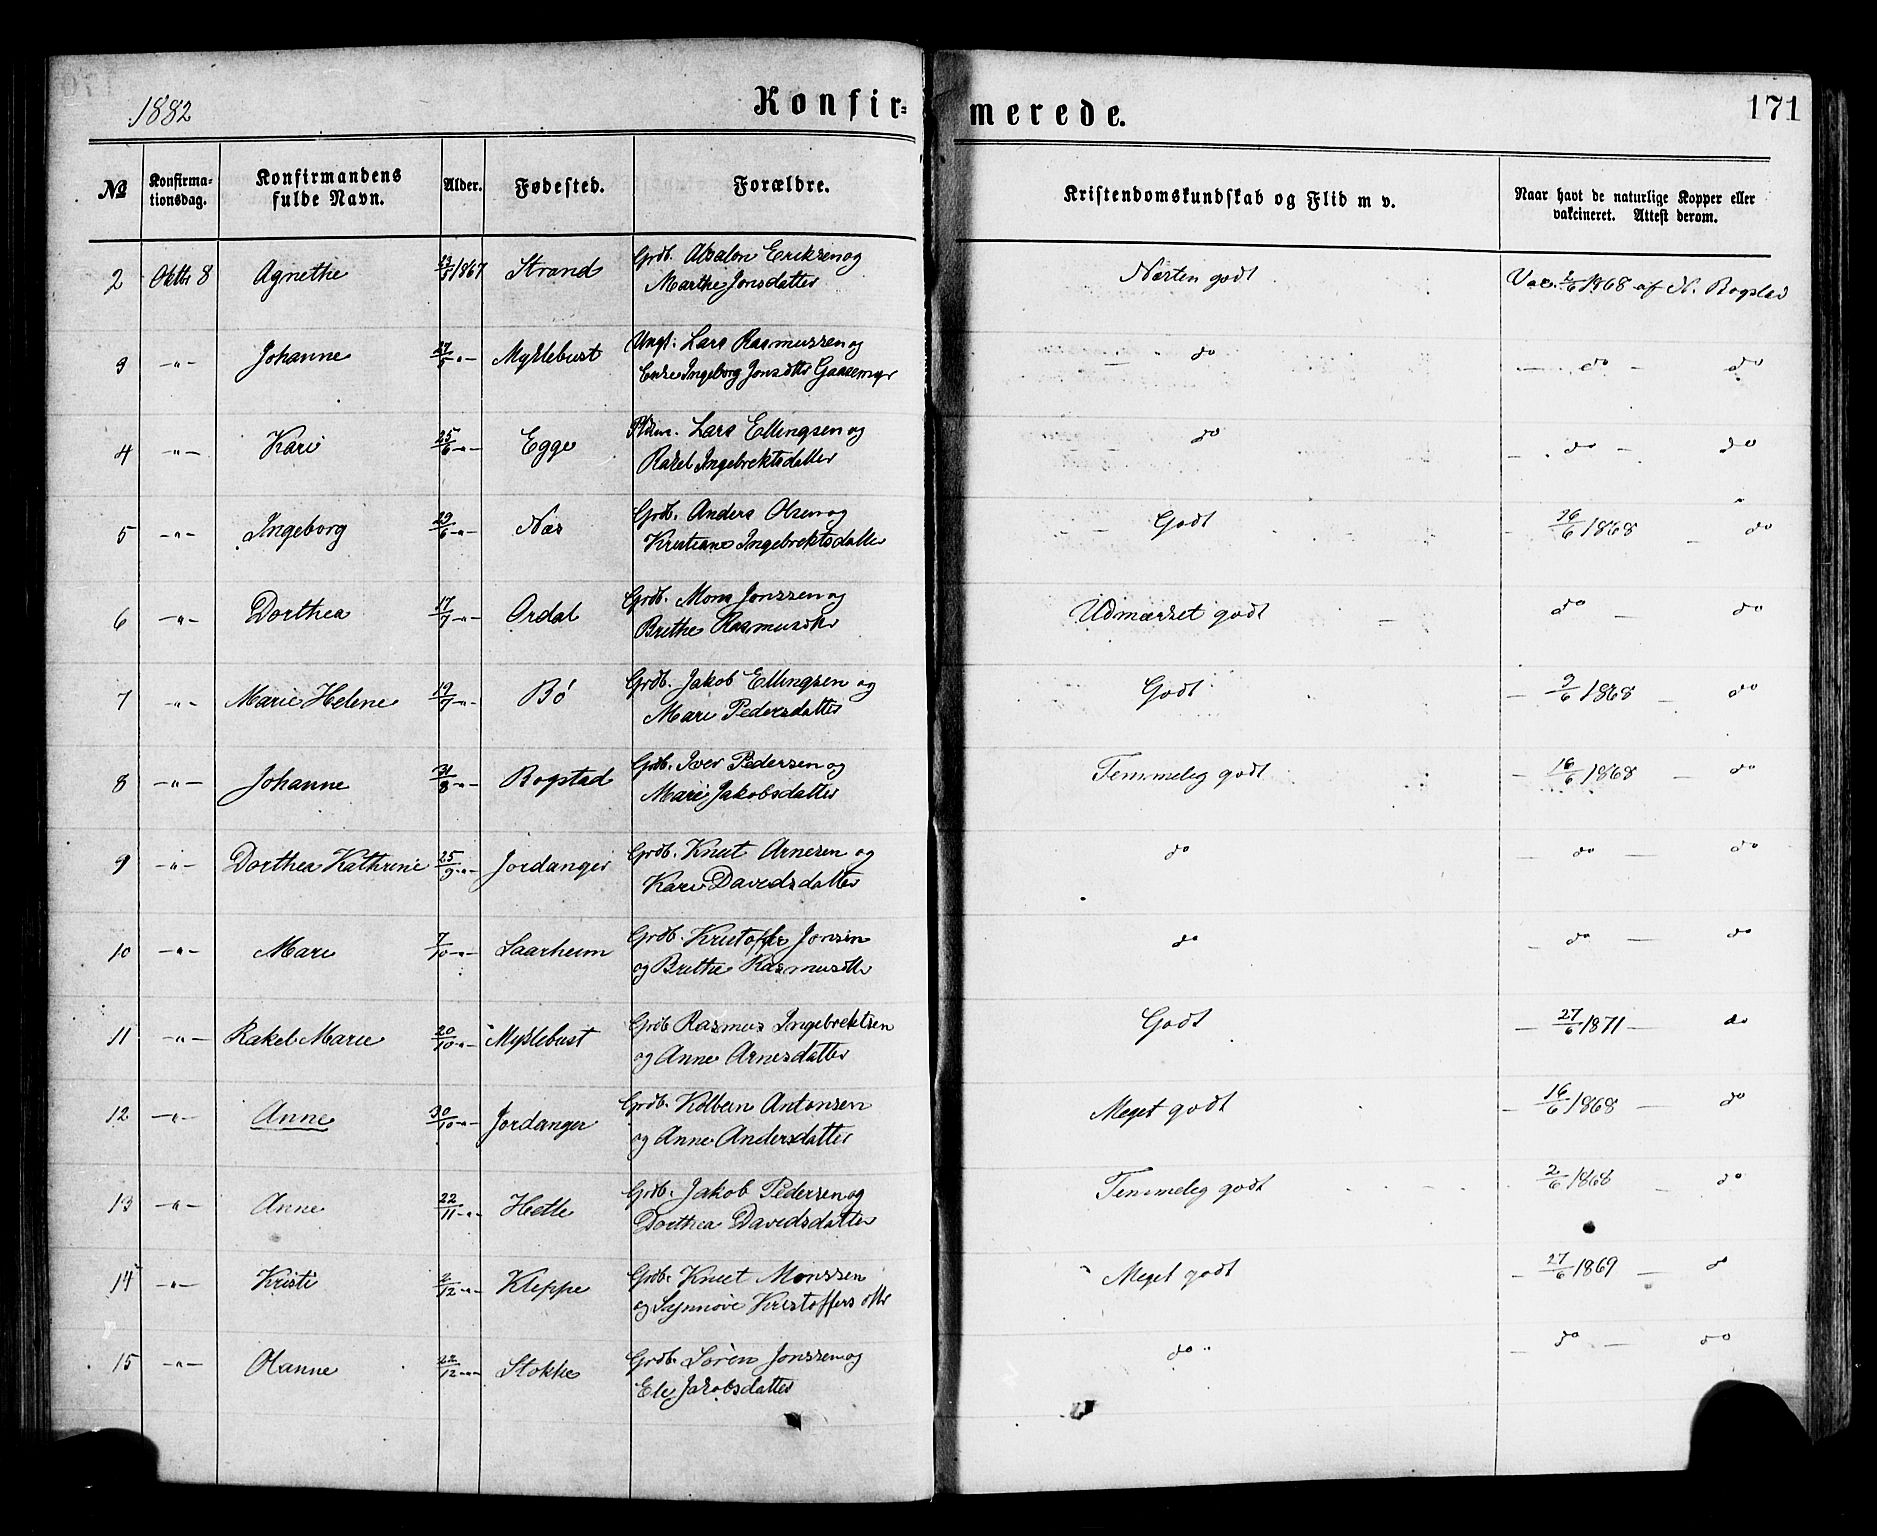 1882
Konfir=
merede.
171
No
Konfirma=
tionsdag.
Konfirmandens
fulde Navn.
Alder.
Fødested.
Forældre.
Kristendomskundskab og Flid m v.
Naar havt de naturlige Kopper eller
vakcineret. Attest derom.
2 Oktbr 8 Agnethe 1867 Strand Grdb. Absalon Eriksen og Næsten godt Vac. 2/6 1868 af N. Rogstad
Marthe Jonsdatter
3 -"- Johanne -"- Myklebust Ungk. Lars Rasmussen og do - do - do
Enke Ingeborg Jonsdttr Gaasemyr
4 -"- Kari 25/6 -"- Egge Lars Ellingsen og do - do - do
Rakel Ingebrektsdatter
5 -"- Ingeborg 29/6 -"- Nes Grdb. Anders Olsen og Godt - 16/6 1868 - do
Kristiane Ingebrektsdatter
6 -"- Dorthea 17/7 -"- Ordal Grdb. Mons Jonssen og Udmærket godt do - do
Brithe Rasmusdtr
7 -"- Marie Helene 19/7 -"- Bö Grdb. Jakob Ellingsen og Godt - 9/6 1868 - do
Mari Pedersdatter
8 -"- Johanne 31/8 -"- Rogstad Grdb. Iver Pedersen og Temmelig godt - 16/6 1868 - do
Mari Jakobsdatter
9 -"- Dorthea Kathrine 25/9 -"- Jordanger Grdb. Knut Arnesen og do - do - do
Kari Davidsdatter
10 -"- Mari 7/10 -"- Saarheim Grdb. Kristoffer Jonsen do - do - do
og Brithe Rasmusdtr
11 -"- Rakel Marie 20/10 -"- Myklebust Grdb Rasmus Ingebrektsen Godt - 27/6 1871 - do
og Anne Arnesdatter
12 -"- Anne 30/10 -"- Jordanger Grdb. Kolbein Antonsen Meget godt - 16/6 1868 - do
og Anne Andersdatter
13 -"- Anne 22/11 -"- Hetle Grdb. Jakob Pedersen og Temmelig godt 2/6 1868 - do
Dorthea Davidsdatter
14 -"- Kristi 2/12 -"- Kleppe Grdb. Knut Monssen Meget godt - 27/6 1869 - do
og Synnöve Kristoffersdttr
15 -"- Olanne 22/12 -"- Stokke Grdb. Sören Jonssen og do - do - do
Eli Jakobsdatter